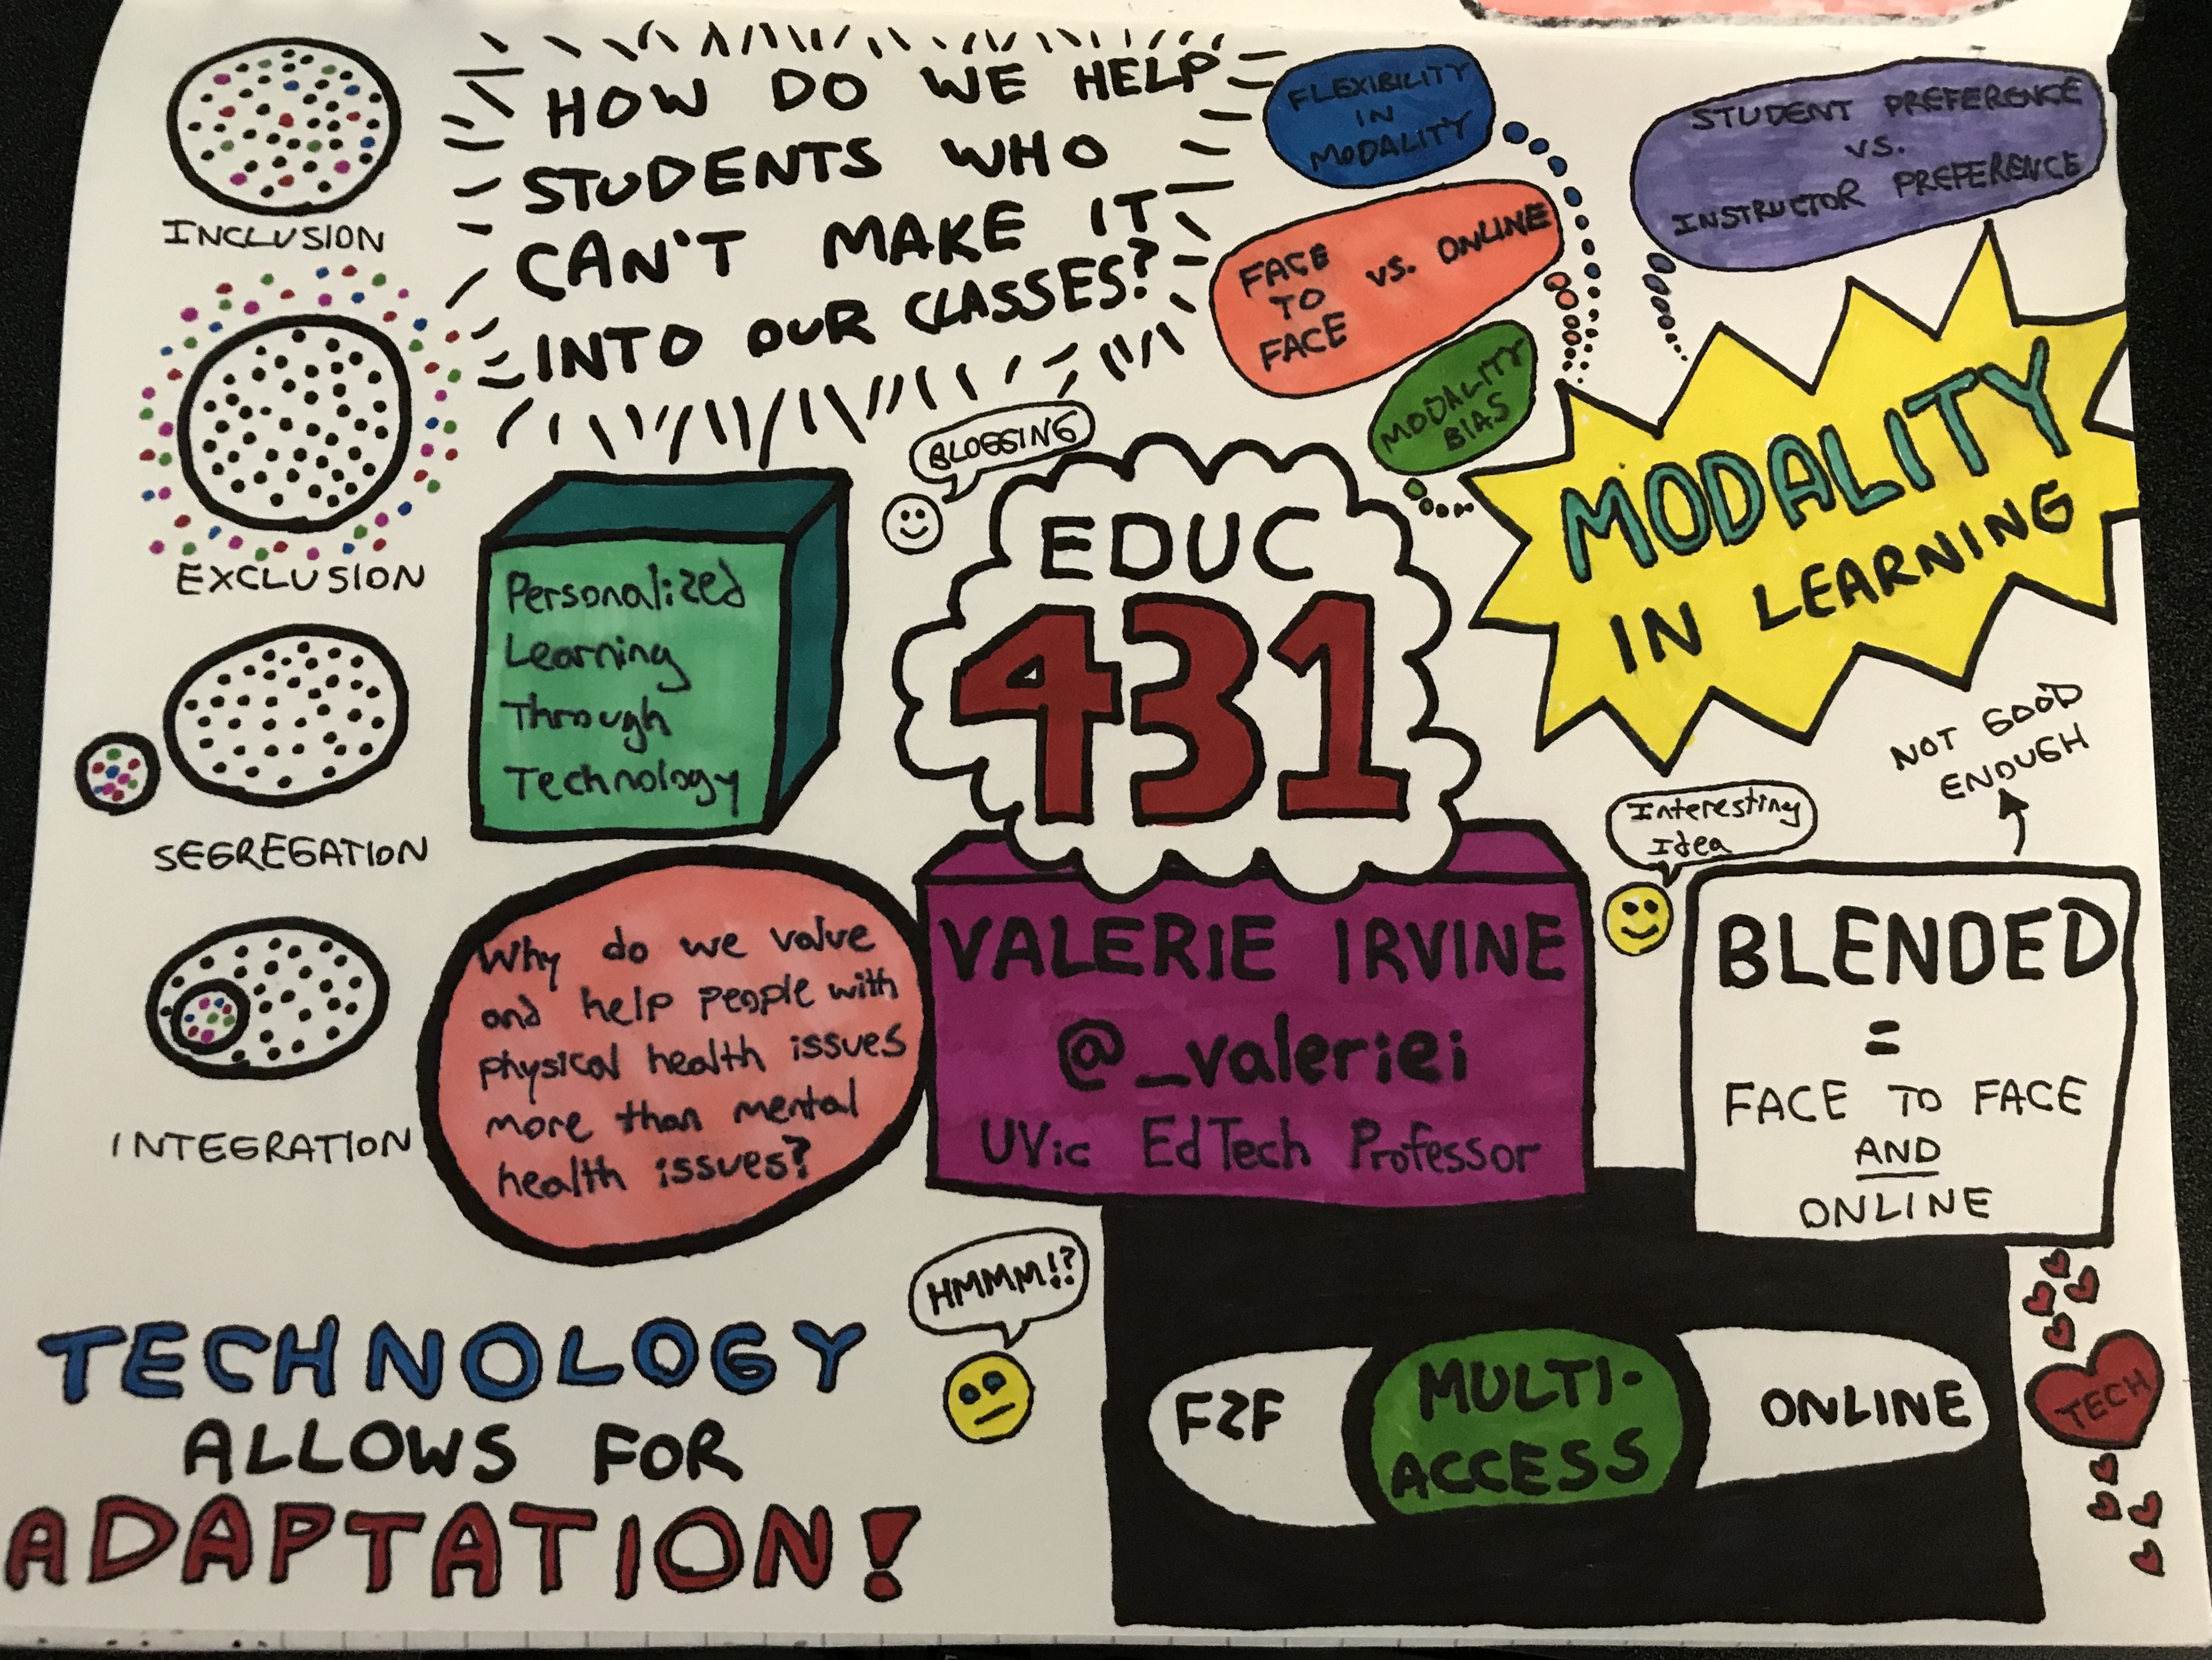 INCLUSION
EXCLUSION
SEGREGATION
INTEGRATION
HOW DO WE HELP
STUDENTS WHO
CAN'T MAKE IT
INTO OUR CLASSES?
FLEXIBILITY
IN
MODALITY
FACE
TO
FACE
vs. ONLINE
MODALITY
BIAS
STUDENT PREFERENCE
vs.
INSTRUCTOR PREFERENCE
MODALITY
IN LEARNING
BLOGGING
EDUC
431
Personalized
Learning
Through
Technology
Why do we value
and help people with
physical health issues
more than mental
health issues?
VALERIE IRVINE
@_valeriei
UVic EdTech Professor
Interesting
Idea
NOT GOOD
ENOUGH
BLENDED
=
FACE TO FACE
AND
ONLINE
HMMM!?
TECHNOLOGY
ALLOWS FOR
ADAPTATION!
F2F
MULTI-
ACCESS
ONLINE
TECH